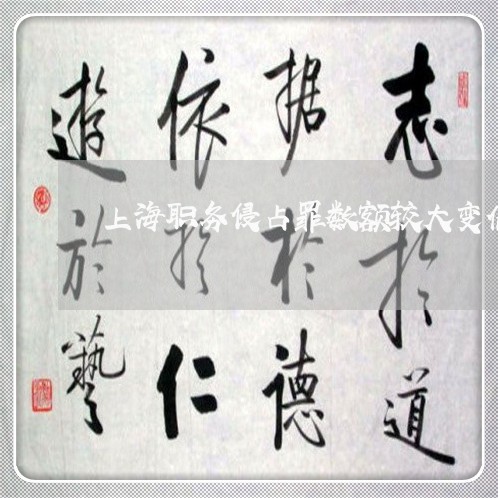 志於道
据於德
依於仁
遊於藝
上海职务侵占罪数额较大变